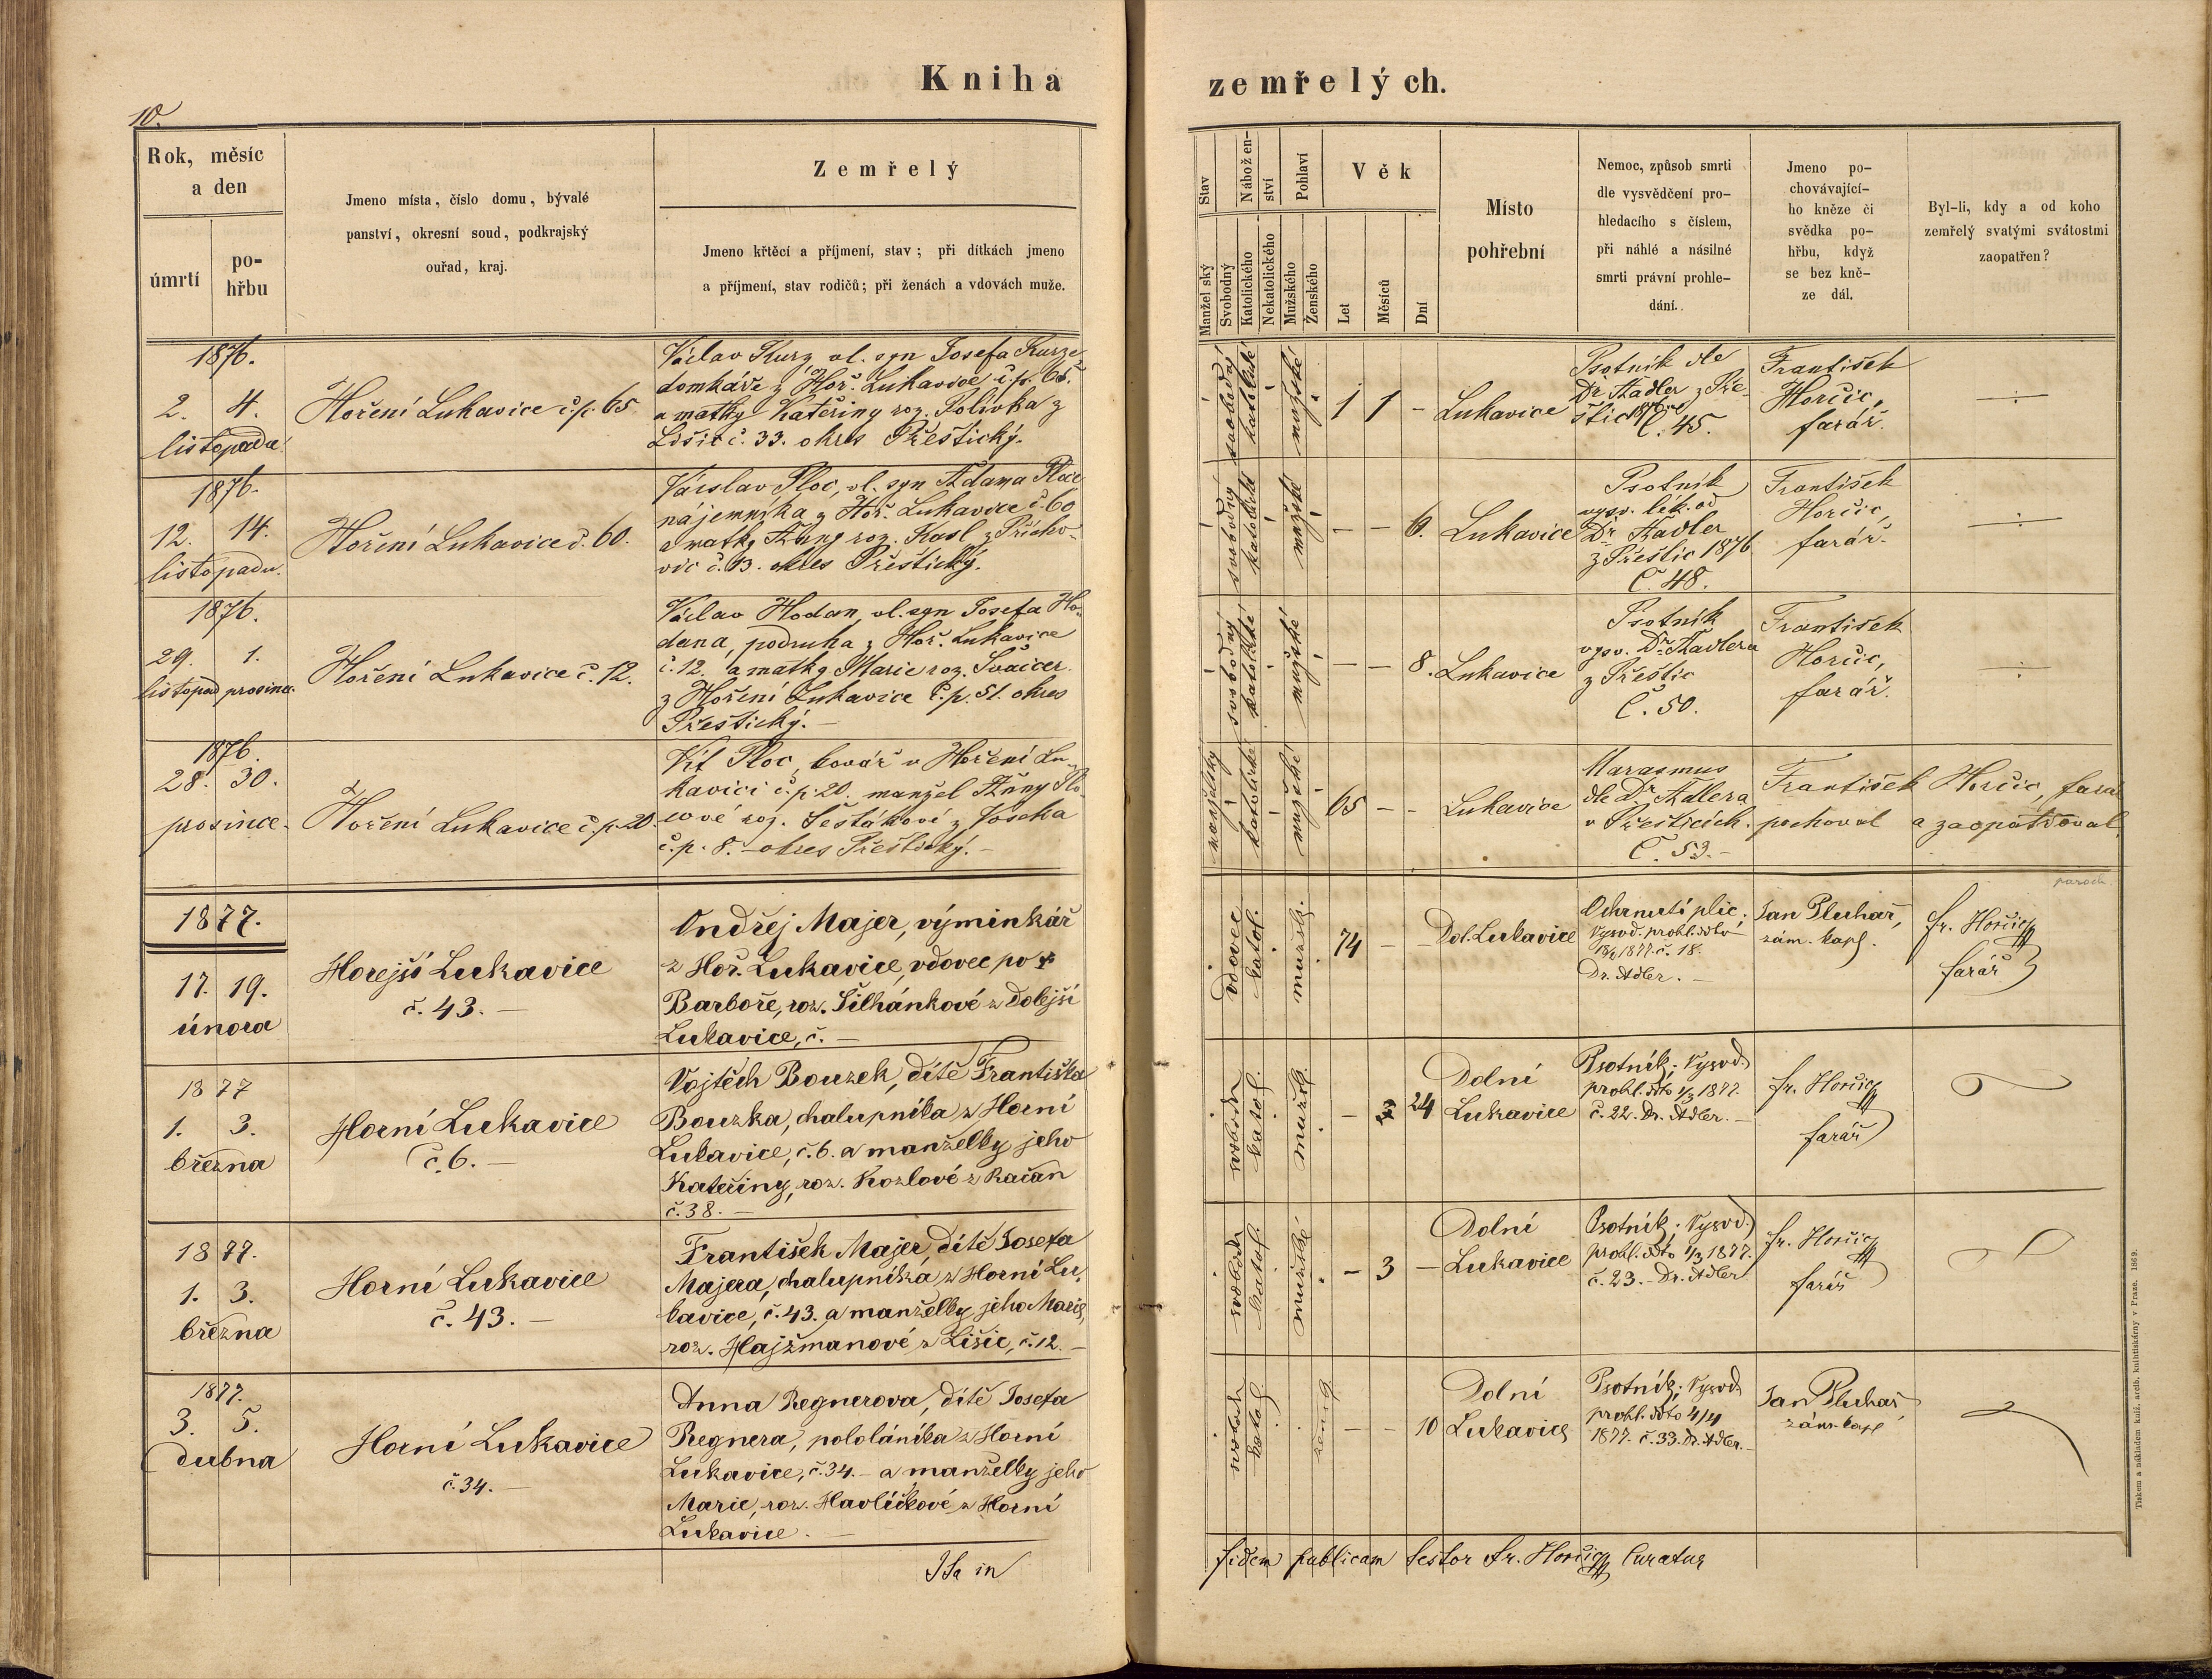 Kniha
zemřelých.
10.
Rok, měsíc
a den
úmrtí
po-
hřbu
Jmeno místa, číslo domu, bývalé
panství, okresní soud, podkrajský
ouřad, kraj.
Zemřelý
Jmeno křtěcí a příjmení, stav; při dítkách jmeno
a příjmení, stav rodičů; při ženách a vdovách muže.
Stav
Manželský
Svobodný
Nábožen-
ství
Katolického
Nekatolického
Pohlaví
Mužského
Ženského
Věk
Let
Měsíců
Dní
Místo
pohřební
Nemoc, způsob smrti
dle vysvědčení pro-
hledacího s číslem,
při náhlé a násilné
smrti právní prohle-
dání.
Jmeno po-
chovávající-
ho kněze či
svědka po-
hřbu, když
se bez kně-
ze dál.
Byl-li, kdy a od koho
zemřelý svatými svátostmi
zaopatřen?
1876.
2. 4.
listopadu
Hoření Lukavice č.p. 65
Václav Kurz, vl. syn Josefa Kurze
domkáře z Hoř. Lukavice č.p. 65.
a matky Kateřiny roz. Polívka z
Lišic č. 33. okres Přeštický.
svobodný
katolické
mužské
1 1 -
Lukavice
Psotník dle
Dr Kadler z Pře-
štic 1876
Č. 45.
František
Horčic,
farář.
1876.
12. 14.
listopadu.
Hoření Lukavice č. 60.
Václav Ploc, vl. syn Adama Ploce
nájemníka z Hoř. Lukavice č. 60
a matky Anny roz. Kasl z Přícho-
vic č. 13. okres Přeštický.
svobodný
katolické
mužské
- - 6.
Lukavice
Psotník
vysv. lék. od
Dr Kadler
z Přeštic 1876
Č. 48.
František
Horčic,
farář.
1876.
29. 1.
listopad prosince
Hoření Lukavice č. 12.
Václav Hodan, vl. syn Josefa Ho-
dana, podruha z Hoř. Lukavice
č. 12. a matky Marie roz. Švajcer
z Hoření Lukavice č.p. 51. okres
Přeštický. -
svobodný
katolické
mužské
- - 8.
Lukavice
Psotník
vysv. Dr. Kadlera
z Přeštic
Č. 50.
František
Horčic,
farář.
1876.
28. 30.
prosince.
Hoření Lukavice č.p. 20.
Vít Ploc, kovář v Hoření Lu-
kavici č.p. 20. manžel Anny Plo-
cové roz. Šestákové z
č.p. 8. - okres Přeštický. -
manželský
katolické
mužské
65 - -
Lukavice
Marasmus
dle Dr Adlera
v Přešticích.
Č. 53. -
František Horčic, farář
pochoval a zaopatřoval
1877.
17. 19.
února
Horejší Lukavice
č. 43. -
Ondřej Majer, výminkář
z Hoř. Lukavice, vdovec po †
Barboře, roz. Šilhánkové z Dolejší
Lukavice, č. -
vdovec
katol.
mužsk.
74 - -
Dol. Lukavice
Ochrnutí plic;
Vysvd. prohl. ddto
1877. č. 18.
Dr. Adler. -
Jan Pluhař,
zám. kapl.
paroch.
Fr. Horčic
farář
1877
1. 3.
března
Horní Lukavice
č. 6. -
Vojtěch Bouzek, dítě Františka
Bouzka, chalupníka z Horní
Lukavice, č. 6. a manželky jeho
Kateřiny, roz. Kozlové z Račan
č. 38. -
svobodn
katol.
mužsk.
- 3 24
Dolní
Lukavice
Psotník; Vysvd.
prohl. ddto 1/3 1877.
č. 22. Dr. Adler. -
Fr. Horčic
farář
1877.
1. 3.
března
Horní Lukavice
č. 43. -
František Majer, dítě Josefa
Majera, chalupníka z Horní Lu-
kavice, č. 43. a manželky jeho Marie,
roz. Hajžmanové z Lišic, č. 12. -
svobodn
katol.
mužské
- 3 -
Dolní
Lukavice
Psotník; Vysvd.
prohl. ddto 1/3 1877.
č. 23. - Dr. Adler
Fr. Horčic
farář
1877.
3. 5.
dubna
Horní Lukavice
č. 34. -
Anna Regnerova, dítě Josefa
Regnera, pololáníka z Horní
Lukavice, č. 34. - a manželky jeho
Marie, roz. Havlíčkové z Horní
Lukavice. -
svobodn
katol.
žensk.
- - 10
Dolní
Lukavice
Psotník; Vysvd.
prohl. ddto 4/4
1877. č. 33. Dr. Adler. -
Jan Pluhař
zám. kapl
Ita in
fidem publicam testor Fr. Horčic Curatus
Tiskem a nákladem kníž. arcib. knihtiskárny v Praze. 1869.